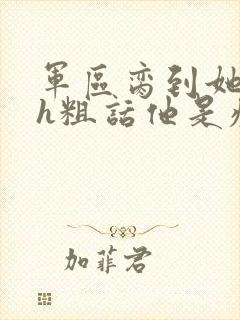 軍區高到她
h粗話他是
加菲君